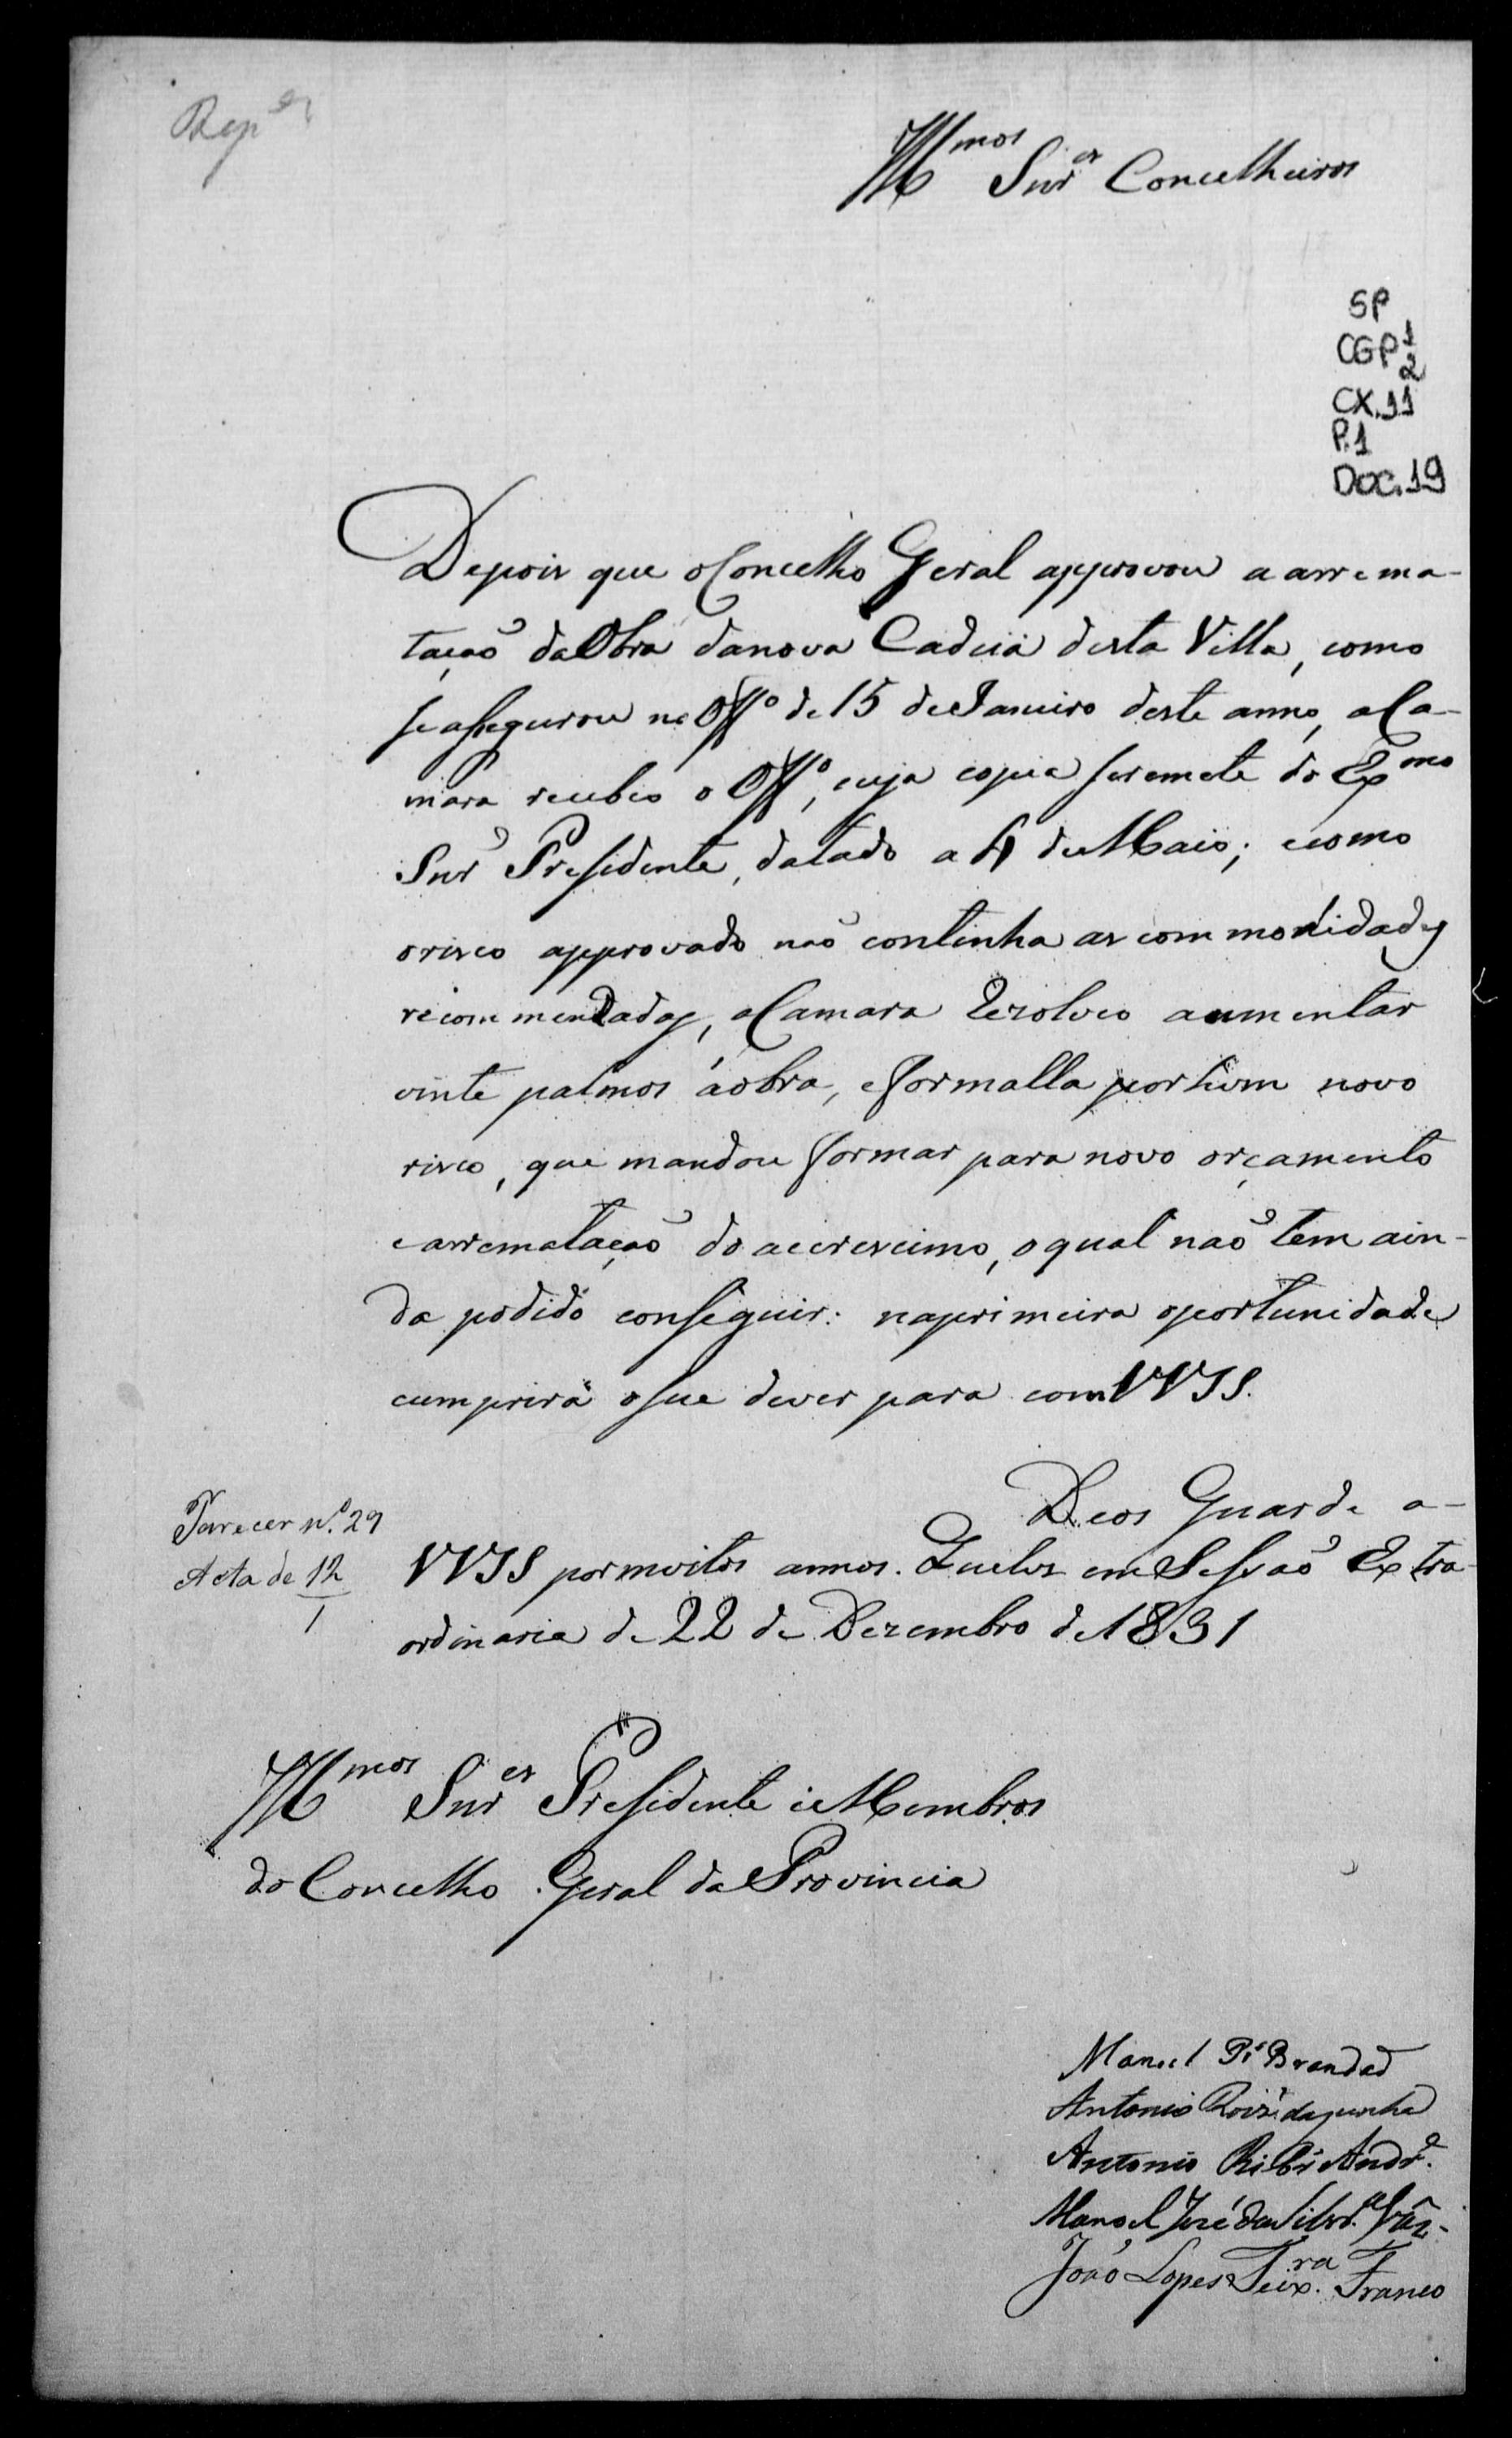 Illmos Snres Concelheiros
SP
CGP 1
2
CX.11
P.1
DOC.19
Depois que o Concelho Geral approvou a arrema-
tação da Obra da nova Cadeia desta Villa, como
se assegurou no Offo de 15 de Janeiro deste anno, a Ca-
mara recebeo o Offo, cuja copia se remete do Exmo
Snr Presidente, datado a 4 de Maio; e como
o risco approvado não continha as commodidades
recommendadas, a Camara Rezolveo aumentar
vinte palmos á obra, e formalla por hum novo
risco, que mandou formar para novo orçamento
e arrematação do accrescimo, o qual não tem ain-
da podido conseguir: na primeira oportunidade
cumprirá o seu dever para com VVSS.
Deos Guarde a
Parecer n.º 29
Acta de 12
1
VVSS por muitos annos. Queluz em Sessão Extra-
ordinaria de 22 de Dezembro de 1831
Illmos Snres Presidente e Membros
do Concelho Geral da Provincia
Manoel Pr Brandão
Antonio Roiz da Cunha
Antonio Ribr Andre
Manoel José da
João Lopes Teixra Franco